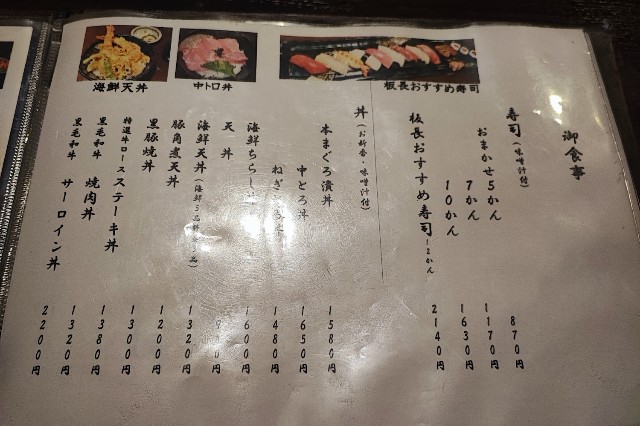 海鮮天丼
中トロ丼
板長おすすめ寿司
御食事
寿司(味噌汁付)
おまかせ5かん 870円
7かん 1170円
10かん 1630円
板長おすすめ寿司12かん 2140円
丼(お新香・味噌汁付)
本まぐろ漬丼 1580円
中とろ丼 1650円
ねぎとろ丼 1480円
海鮮ちらし丼 1600円
天丼 円
海鮮天丼(海鮮 1320円
豚角煮天丼 1200円
黒豚焼丼 1300円
特選牛ロースステーキ丼 1380円
黒毛和牛 焼肉丼 1320円
黒毛和牛 サーロイン丼 2200円